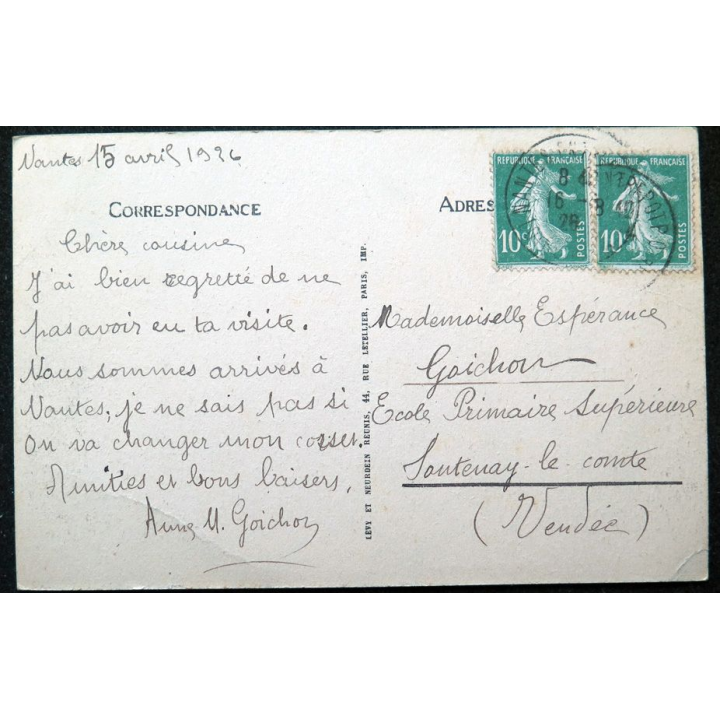 Nantes 15 avril 1926
CORRESPONDANCE
Chère cousine
J'ai bien regretté de ne
pas avoir eu ta visite.
Nous sommes arrivés à
Nantes, je ne sais pas si
On va changer mon
Amitiés et bons baisers,
Anne M. Goichon
LÉVY ET NEURDEIN REUNIS, 44, RUE LETELLIER, PARIS, IMP.
ADRES
REPUBLIQUE FRANÇAISE
10c
POSTES
REPUBLIQUE FRANÇAISE
10
POSTES
8 40
16 - 3 40
26
Mademoiselle Espérance
Goichon
Ecole Primaire Supérieure
Fontenay-le-comte
(Vendée)